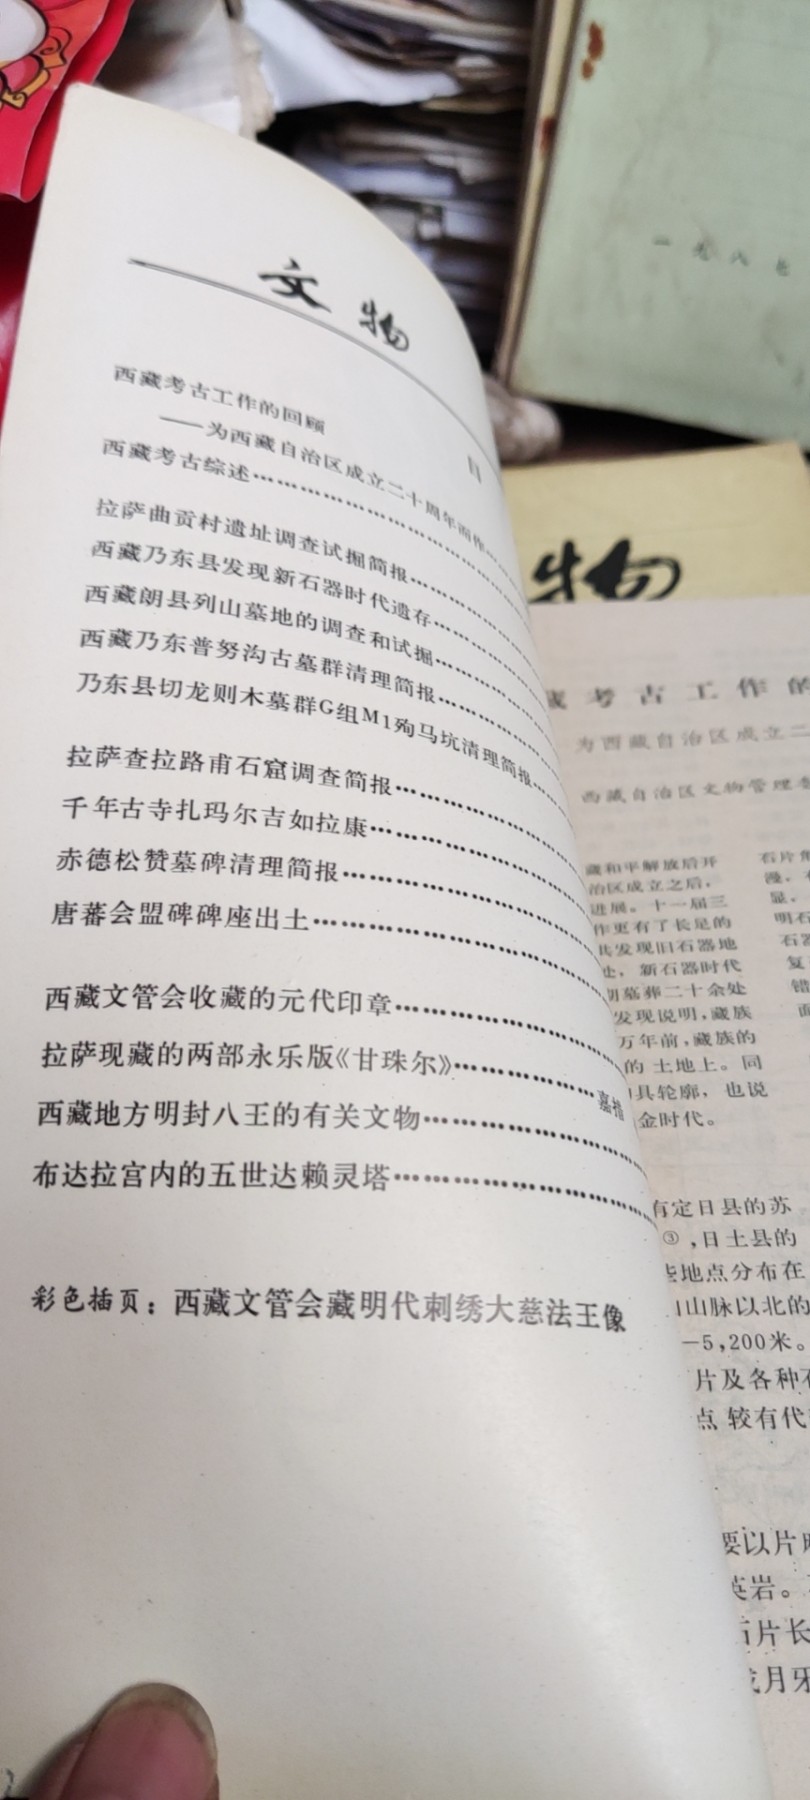 文物
目
西藏考古工作的回顾
——为西藏自治区成立二十周年而作……
西藏考古综述……
拉萨曲贡村遗址调查试掘简报……
西藏乃东县发现新石器时代遗存……
西藏朗县列山墓地的调查和试掘……
西藏乃东普努沟古墓群清理简报……
乃东县切龙则木墓群G组M1殉马坑清理简报……
拉萨查拉路甫石窟调查简报……
千年古寺扎玛尔吉如拉康……
赤德松赞墓碑清理简报……
唐蕃会盟碑碑座出土……
西藏文管会收藏的元代印章……
拉萨现藏的两部永乐版《甘珠尔》……嘉措
西藏地方明封八王的有关文物……
布达拉宫内的五世达赖灵塔……
彩色插页：西藏文管会藏明代刺绣大慈法王像
一九八七
物
藏考古工作的
为西藏自治区成立二
西藏自治区文物管理委
藏和平解放后开
治区成立之后，
进展。十一届三
作更有了长足的
共发现旧石器地
处，新石器时代
期墓葬二十余处
发现说明，藏族
万年前，藏族的
的土地上。同
具轮廓，也说
金时代。
石片角
漫，
显，
明石
石器
复
错
面
有定日县的苏
③，日土县的
些地点分布在
山脉以北的
—5,200米。
片及各种石
点较有代
要以片
英岩。
石片长
月牙